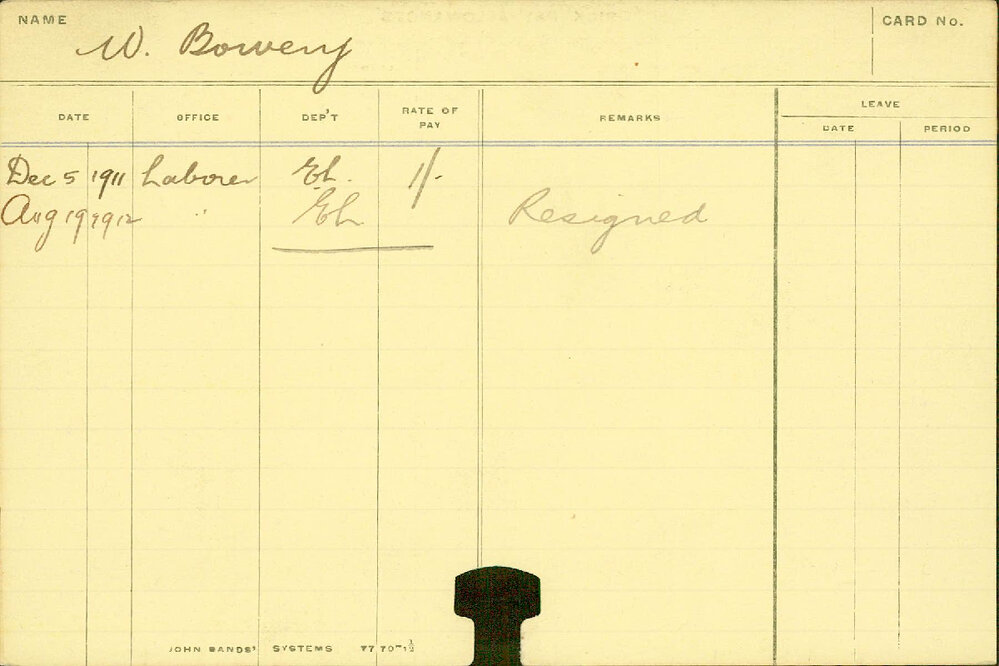 NAME
W. Bowery
CARD No.
DATE OFFICE DEP'T RATE OF PAY REMARKS LEAVE
DATE PERIOD
Dec 5 1911 Laborer Eh. 1/-
Aug 19 1912 " Eh Resigned
JOHN SANDS' SYSTEMS 77 70-1½